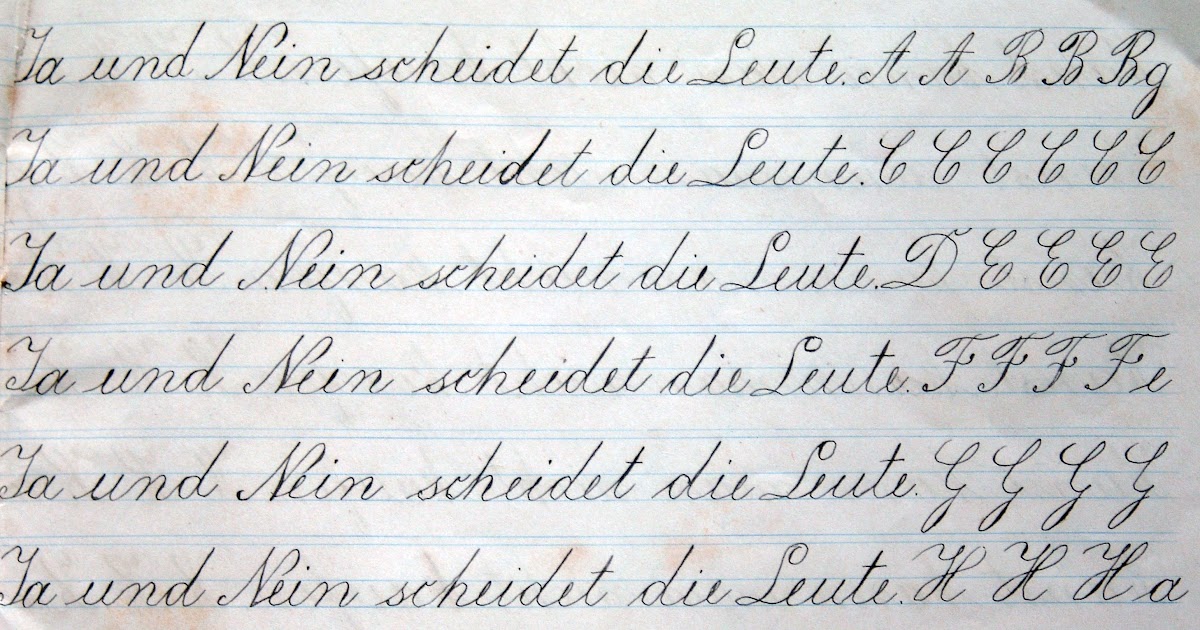 Ja und Nein scheidet die Leute. A A B B B g
Ja und Nein scheidet die Leute. C C C C C C
Ja und Nein scheidet die Leute. D E E E E
Ja und Nein scheidet die Leute. F F F F e
Ja und Nein scheidet die Leute. G G G G
Ja und Nein scheidet die Leute. H H H a